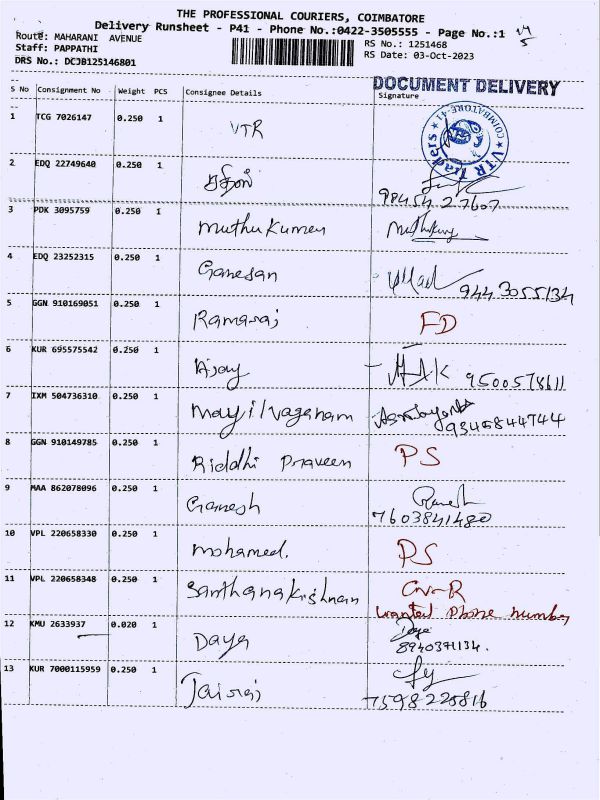 THE PROFESSIONAL COURIERS, COIMBATORE
Delivery Runsheet - P41 - Phone No.:0422-3505555 - Page No.:1
Route: MAHARANI AVENUE
RS No.: 1251468
Staff: PAPPATHI
RS Date: 03-Oct-2023
DRS No.: DCJB125146801
DOCUMENT DELIVERY
S No Consignment No Weight PCS Consignee Details Signature
1 TCG 7026147 0.250 1 VTR
VTR Traders ★ COIMBATORE-41 ★
2 EDQ 22749640 0.250 1
98454 27607
3 PDK 3095759 0.250 1 muthukumar
4 EDQ 23252315 0.250 1 Ganesan
9443055134
5 GGN 910169051 0.250 1 Ramaraj FD
6 KUR 695575542 0.250 1 Ajay 9500578611
7 IXM 504736310 0.250 1 mayilvaganam
9345844744
8 GGN 910149785 0.250 1 Riddhi Praveen PS
9 MAA 862078096 0.250 1 Ganesh
7603841480
10 VPL 220658330 0.250 1 mohamed. PS
11 VPL 220658348 0.250 1 Santhanakrishnan
wanted phone number
12 KMU 2633937 0.020 1 Daya
8940371134.
13 KUR 7000115959 0.250 1 Jairaj
7598225816